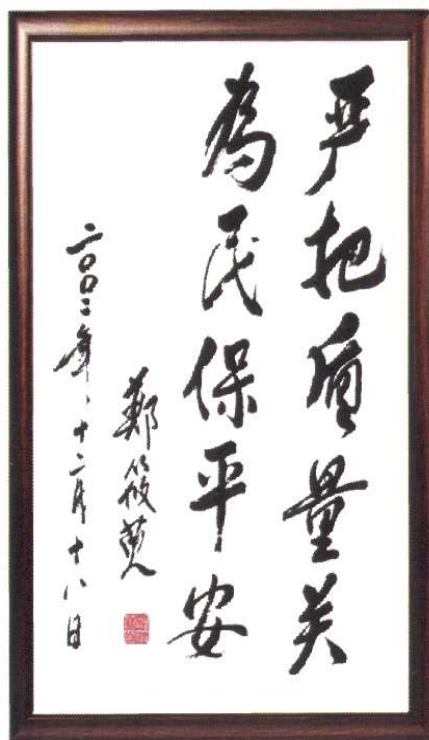 严把质量关
為民保平安
鄭筱萸
二〇〇二年、十二月十八日